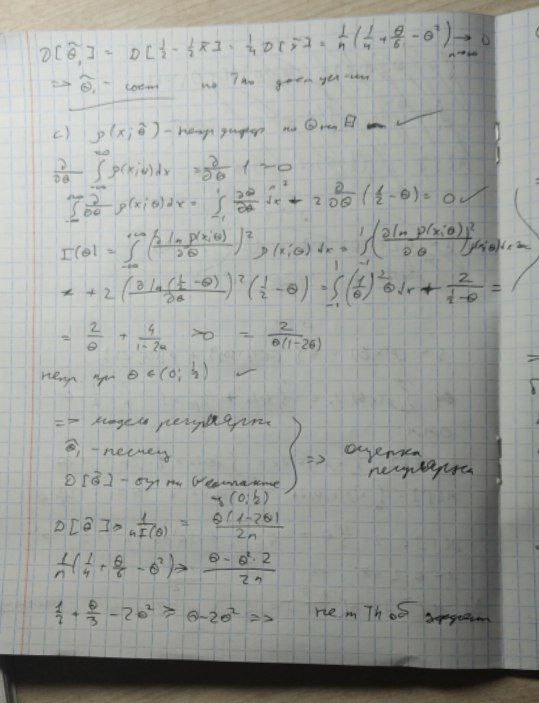 D[θ̃₁] = D[½ - ½ x̄] = ¼ D[x̄] = 1/n (1/4 + θ/6 - θ²) →_{n→∞} 0
=> θ̃₁ - сост по Th о
c) p(x,θ̃) - непр дифф по θ на Θ ✓
∂/∂θ ∫_{-∞}^{+∞} p(x,θ)dx = ∂/∂θ 1 = 0
∫_{-∞}^{+∞} ∂/∂θ p(x,θ)dx = ∫_{-1}^{1} ∂θ/∂θ dx + 2 ∂/∂θ (½ - θ) = 0 ✓
I(θ) = ∫_{-∞}^{+∞} (∂ ln p(x,θ)/∂θ)² p(x,θ) dx = ∫_{-1}^{1} (∂ ln p(x,θ)/∂θ)² p(x,θ)dx
+ 2 (∂ ln(½ - θ)/∂θ)² (½ - θ) = ∫_{-1}^{1} (1/θ)² θ dx + 2/(½ - θ) =
= 2/θ + 4/(1-2θ) > 0 = 2/(θ(1-2θ))
непр при θ ∈ (0; ½) ✓
=> модель регулярна
θ̃₁ - несмещ
D[θ̃] - огр на компакте
(0; ½)
=> оценка
регулярна
D[θ̃] ≥ 1/(nI(θ)) = θ(1-2θ)/2n
1/n (1/4 + θ/6 - θ²) ≥ (θ - θ²·2)/2n
1/2 + θ/3 - 2θ² ≥ θ - 2θ² => Th об